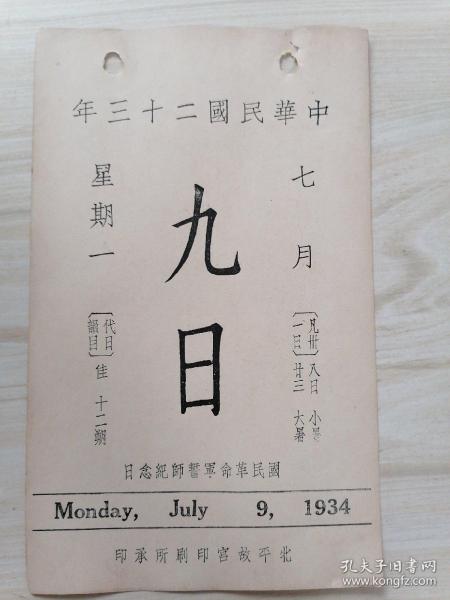 中華民國二十三年
七月
〔凡卅一日〕
八日 小暑
廿三 大暑
九日
星期一
〔代日韻目〕佳 十二期
國民革命軍誓師紀念日
Monday, July 9, 1934
北平故宮印刷所承印
孔夫子旧书网
www.kongfz.com